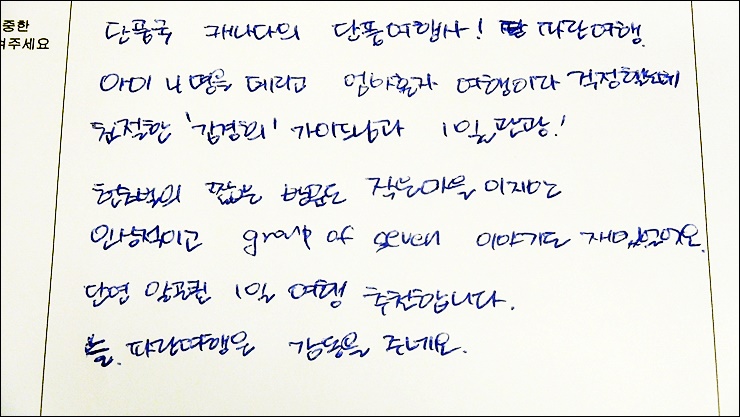 중한
켜주세요
단풍국 캐나다의 단풍여행사! 파란여행.
아이 4명을 데리고 엄마혼자 여행이라 걱정했는데
친절한 '김경희' 가이드님과 1일관광!
짧은 작은마을이지만
인상적이고 group of seven 이야기도 재밌었어요.
단연 알곤퀸 1일 여행 추천합니다.
늘. 파란여행은 감동을 주네요.